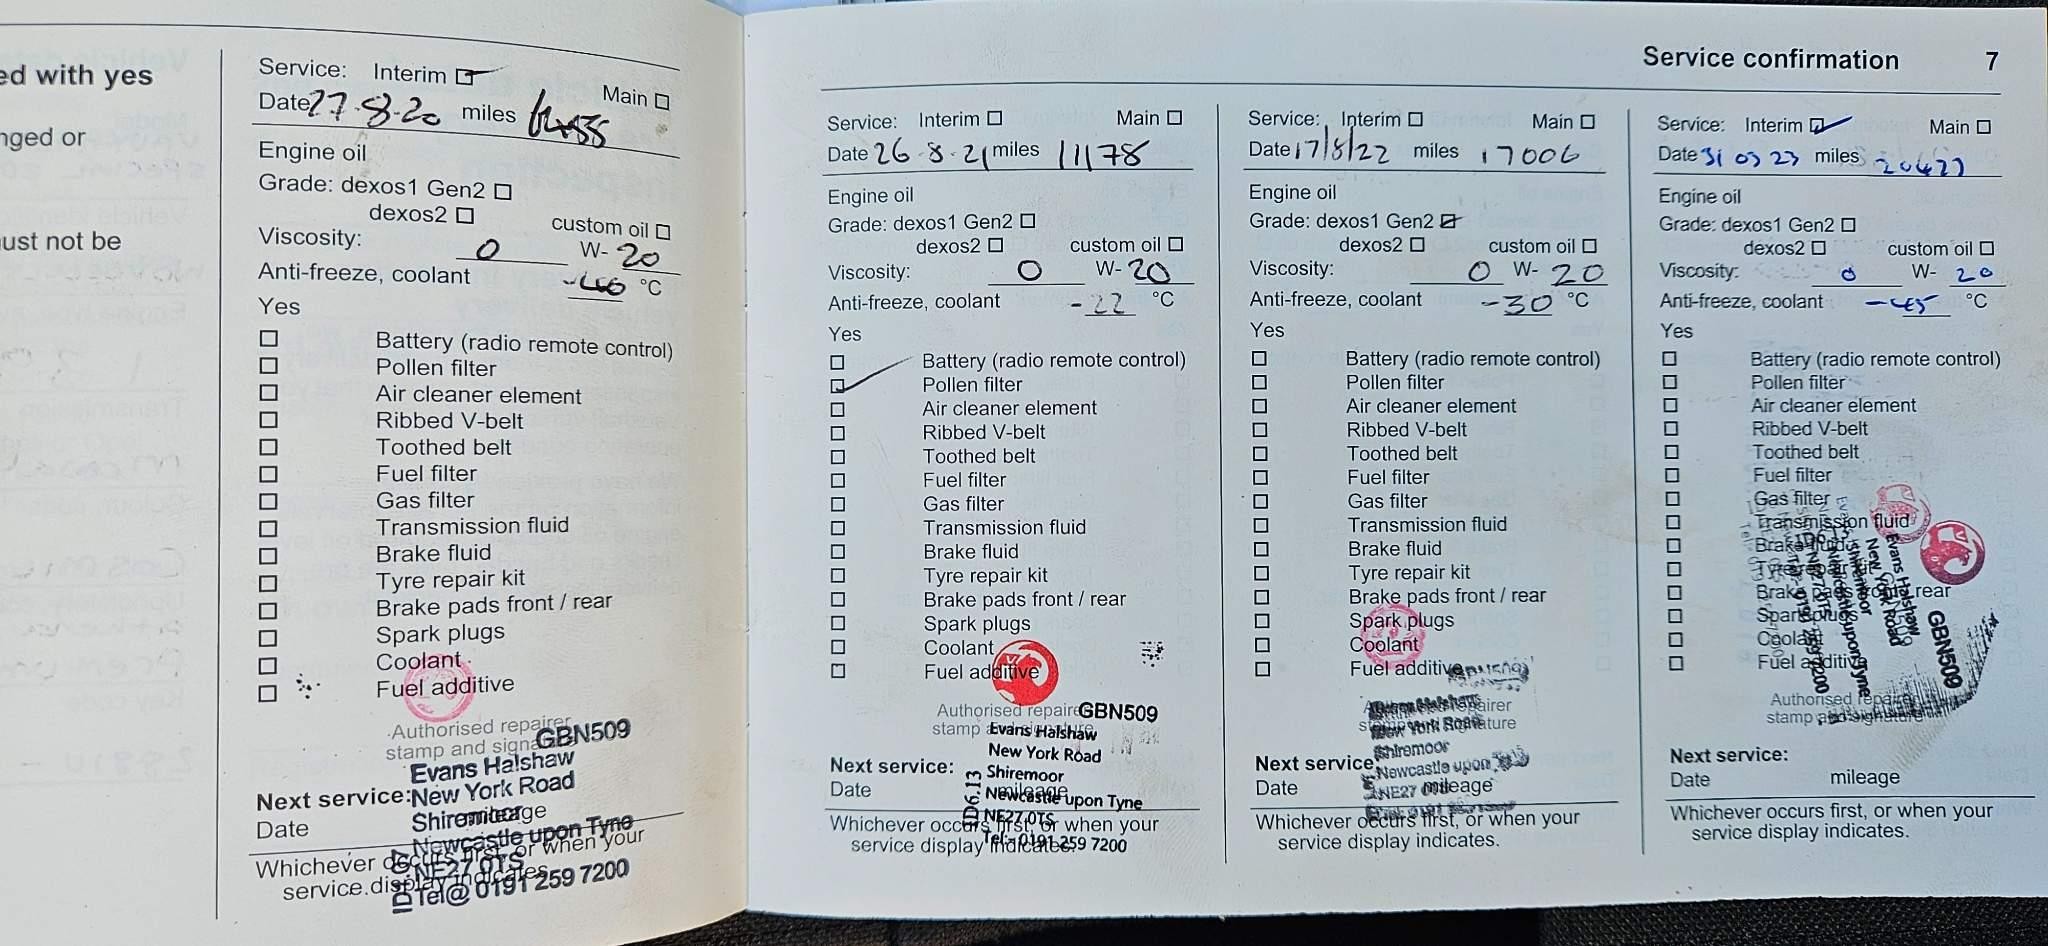 ed with yes
nged or
ust not be
Service: Interim Main
Date 27-8-20 miles
Engine oil
Grade: dexos1 Gen2
dexos2 custom oil
Viscosity: 0 W- 20
Anti-freeze, coolant °C
Yes
Battery (radio remote control)
Pollen filter
Air cleaner element
Ribbed V-belt
Toothed belt
Fuel filter
Gas filter
Transmission fluid
Brake fluid
Tyre repair kit
Brake pads front / rear
Spark plugs
Coolant
Fuel additive
Authorised repairer
stamp and
GBN509
Evans Halshaw
New York Road
Shiremoor
Newcastle upon Tyne
NE27 0TS
Tel@ 0191 259 7200
Next service:
Date mileage
Whichever occurs first, or when your
service display indicates.
Service confirmation 7
Service: Interim Main
Date 26-8-21 miles 11178
Engine oil
Grade: dexos1 Gen2
dexos2 custom oil
Viscosity: 0 W- 20
Anti-freeze, coolant -22 °C
Yes
Battery (radio remote control)
Pollen filter
Air cleaner element
Ribbed V-belt
Toothed belt
Fuel filter
Gas filter
Transmission fluid
Brake fluid
Tyre repair kit
Brake pads front / rear
Spark plugs
Coolant
Fuel additive
Authorised repairer
stamp
GBN509
Evans Halshaw
New York Road
Shiremoor
Newcastle upon Tyne
NE27 0TS
Tel:- 0191 259 7200
ID6.13
Next service:
Date mileage
Whichever occurs first, or when your
service display indicates.
Service: Interim Main
Date 17/8/22 miles 17006
Engine oil
Grade: dexos1 Gen2
dexos2 custom oil
Viscosity: 0 W- 20
Anti-freeze, coolant -30 °C
Yes
Battery (radio remote control)
Pollen filter
Air cleaner element
Ribbed V-belt
Toothed belt
Fuel filter
Gas filter
Transmission fluid
Brake fluid
Tyre repair kit
Brake pads front / rear
Spark plugs
Coolant
Fuel additive
Shiremoor
Newcastle upon
NE27 0TS
Next service:
Date mileage
Whichever occurs first, or when your
service display indicates.
Service: Interim Main
Date 31 03 23 miles
Engine oil
Grade: dexos1 Gen2
dexos2 custom oil
Viscosity: 0 W- 20
Anti-freeze, coolant -45 °C
Yes
Battery (radio remote control)
Pollen filter
Air cleaner element
Ribbed V-belt
Toothed belt
Fuel filter
Gas filter
Transmission fluid
Brake fluid
Tyre repair kit
Brake pads front / rear
Spark plugs
Coolant
Fuel additive
GBN509
Evans Halshaw
New York Road
Shiremoor
Newcastle upon Tyne
NE27 0TS
ID6.13
Authorised repairer
stamp and signature
Next service:
Date mileage
Whichever occurs first, or when your
service display indicates.